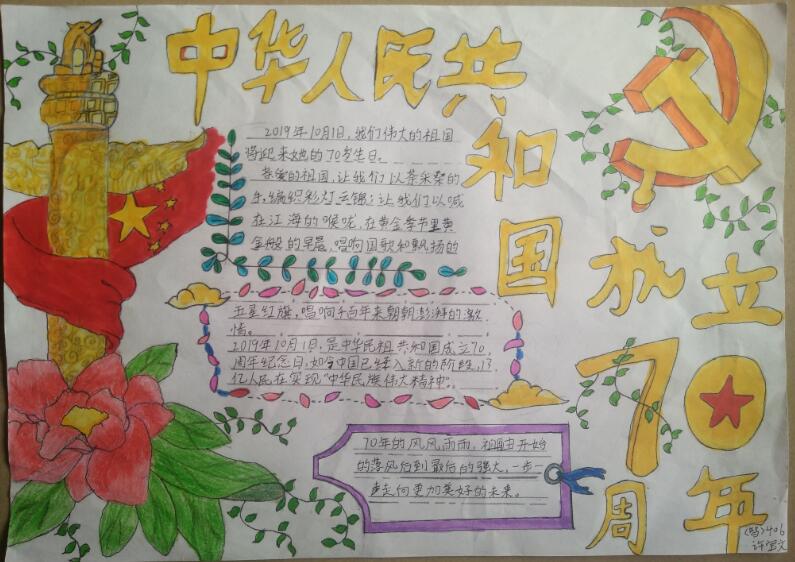 中华人民共和国
成立70周年
2019年10月1日,我们伟大的祖国
将迎来她的70岁生日。
亲爱的祖国,让我们以茶采桑的
手,编织彩灯云锦;让我们以喊
在江海的喉咙,在黄金季节里黄
金般的早晨,唱响国歌和飘扬的
五星红旗,唱响千百年来朝朝澎湃的激
情。
2019年10月1日,是中华民祖共和国成立70
周年纪念日,如今中国已经入新的阶段,13
亿人民在实现“中华民族伟大精神”。
70年的风风雨雨,祖国由开始
的落后到最后的强大,一步一
走向更加美好的未来。
406